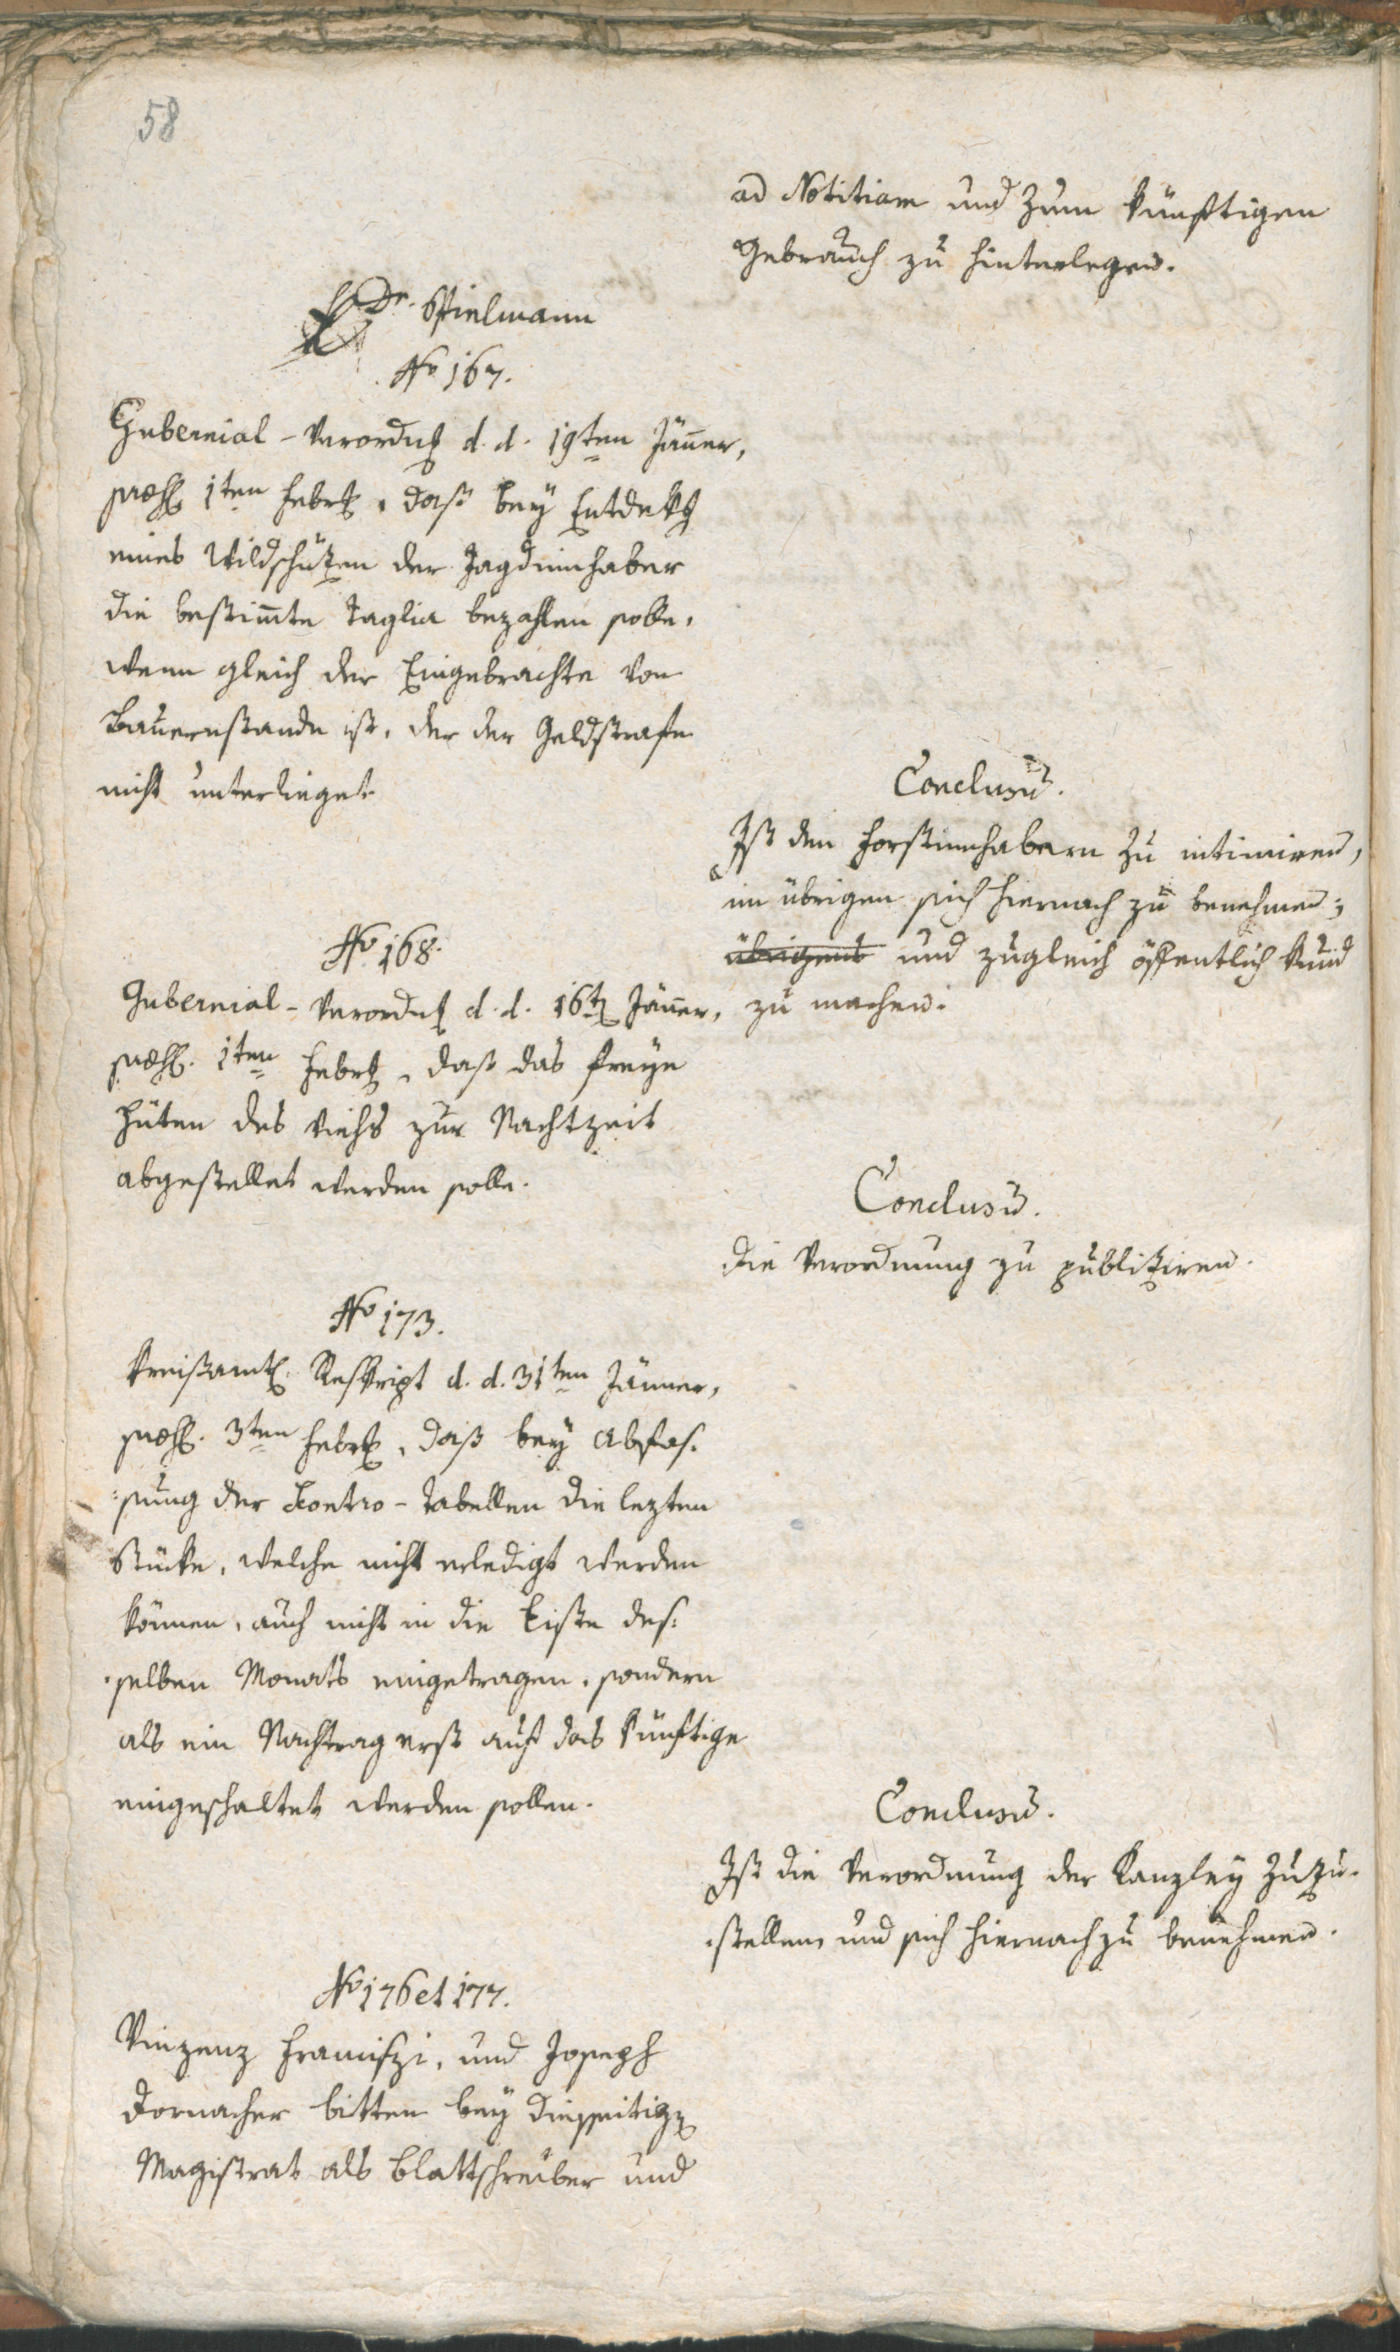 58
ad Notitiam und zum künftigen
Gebrauch zu hinterlegen.
Dr. Spielmann
No 167.
Gubernial-Verordng d. d. 19ten Jäner,
præs. 1ten Febr, daß bey Entdekg
eines Wildschützen der Jagdinnhaber
die bestimte Taglia bezahlen solle,
wenn gleich der Eingebrachte von
Bauernstande ist, der der Geldstrafe
nicht unterlieget.
Conclusum.
Ist den Forstinnhabern zu intimiren,
im übrigen sich hiernach zu benehmen,
übrigens und zugleich öffentlich kund
zu machen.
No 168.
Gubernial-Verordng d. d. 16t Jäner,
præs. 1ten Febr, daß das freye
Hüten des Viehs zur Nachtzeit
abgestellet werden solle.
Conclusum.
Die Verordnung zu publiziren.
No 173.
Kreisamtl. Reskript d. d. 31ten Jänner,
præs. 3ten Febr, daß bey Abfas-
sung der Kontro-Tabellen die lezten
Stücke, welche nicht erledigt werden
können, auch nicht in die Liste des-
selben Monats eingetragen, sondern
als ein Nachtrag erst auf das künftige
eingeschaltet werden sollen.
Conclusum.
Ist die Verordnung der Kanzley zuzu-
stellen, und sich hiernach zu benehmen.
No 176 et 177.
Vinzenz Franciszi, und Joseph
Dornacher bitten bey diesseitign
Magistrat als Blattschreiber und